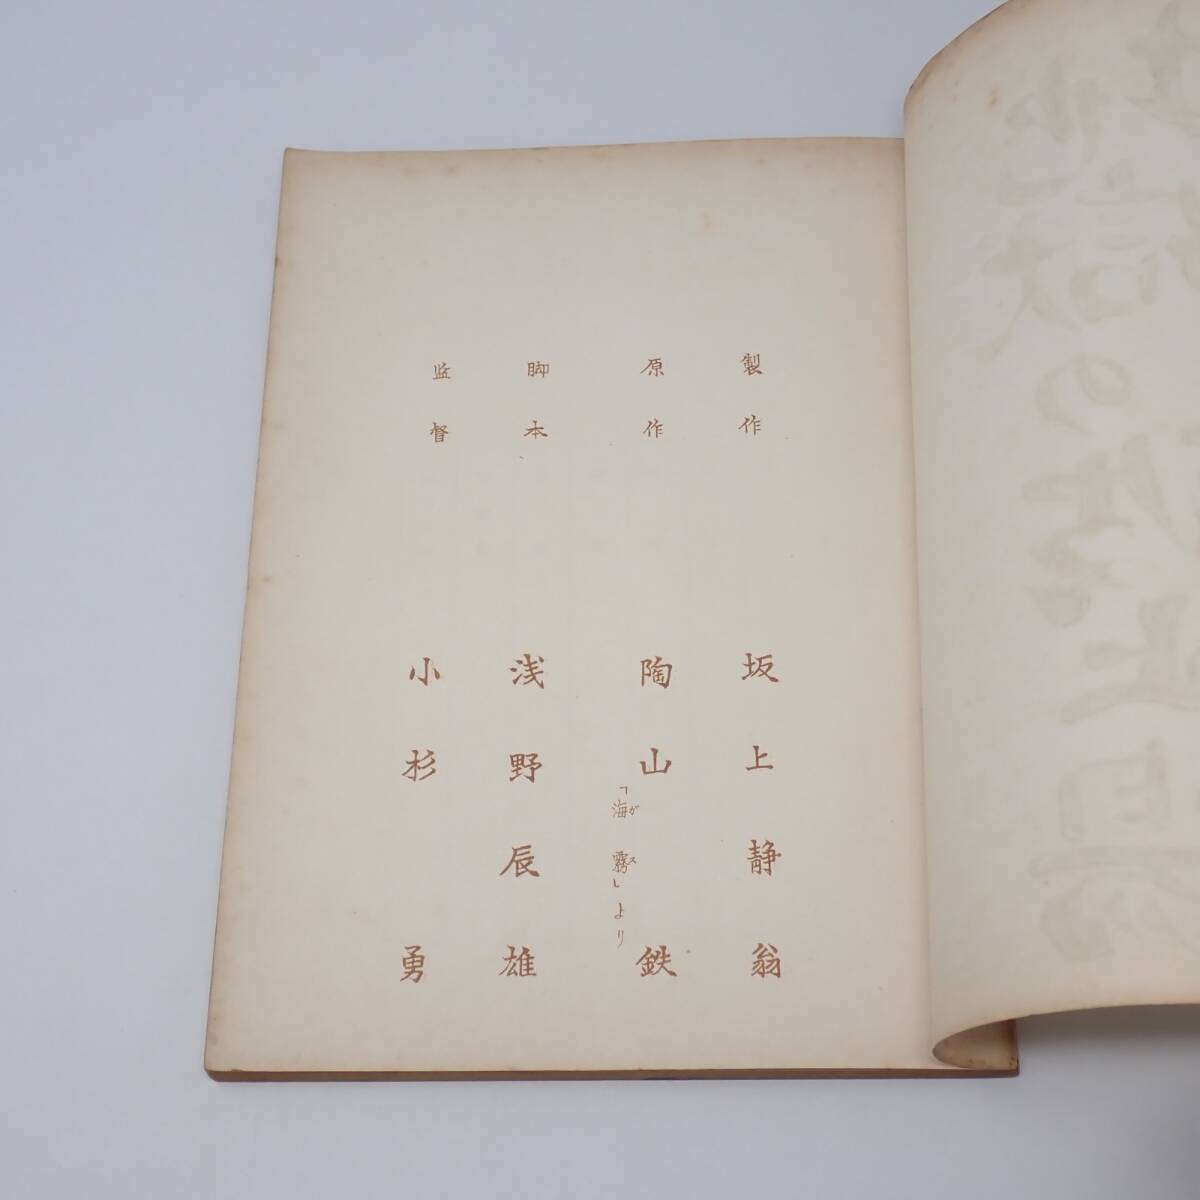 製作 坂上静翁
原作 陶山鉄
「海霧」より
がス
脚本 浅野辰雄
監督 小杉勇